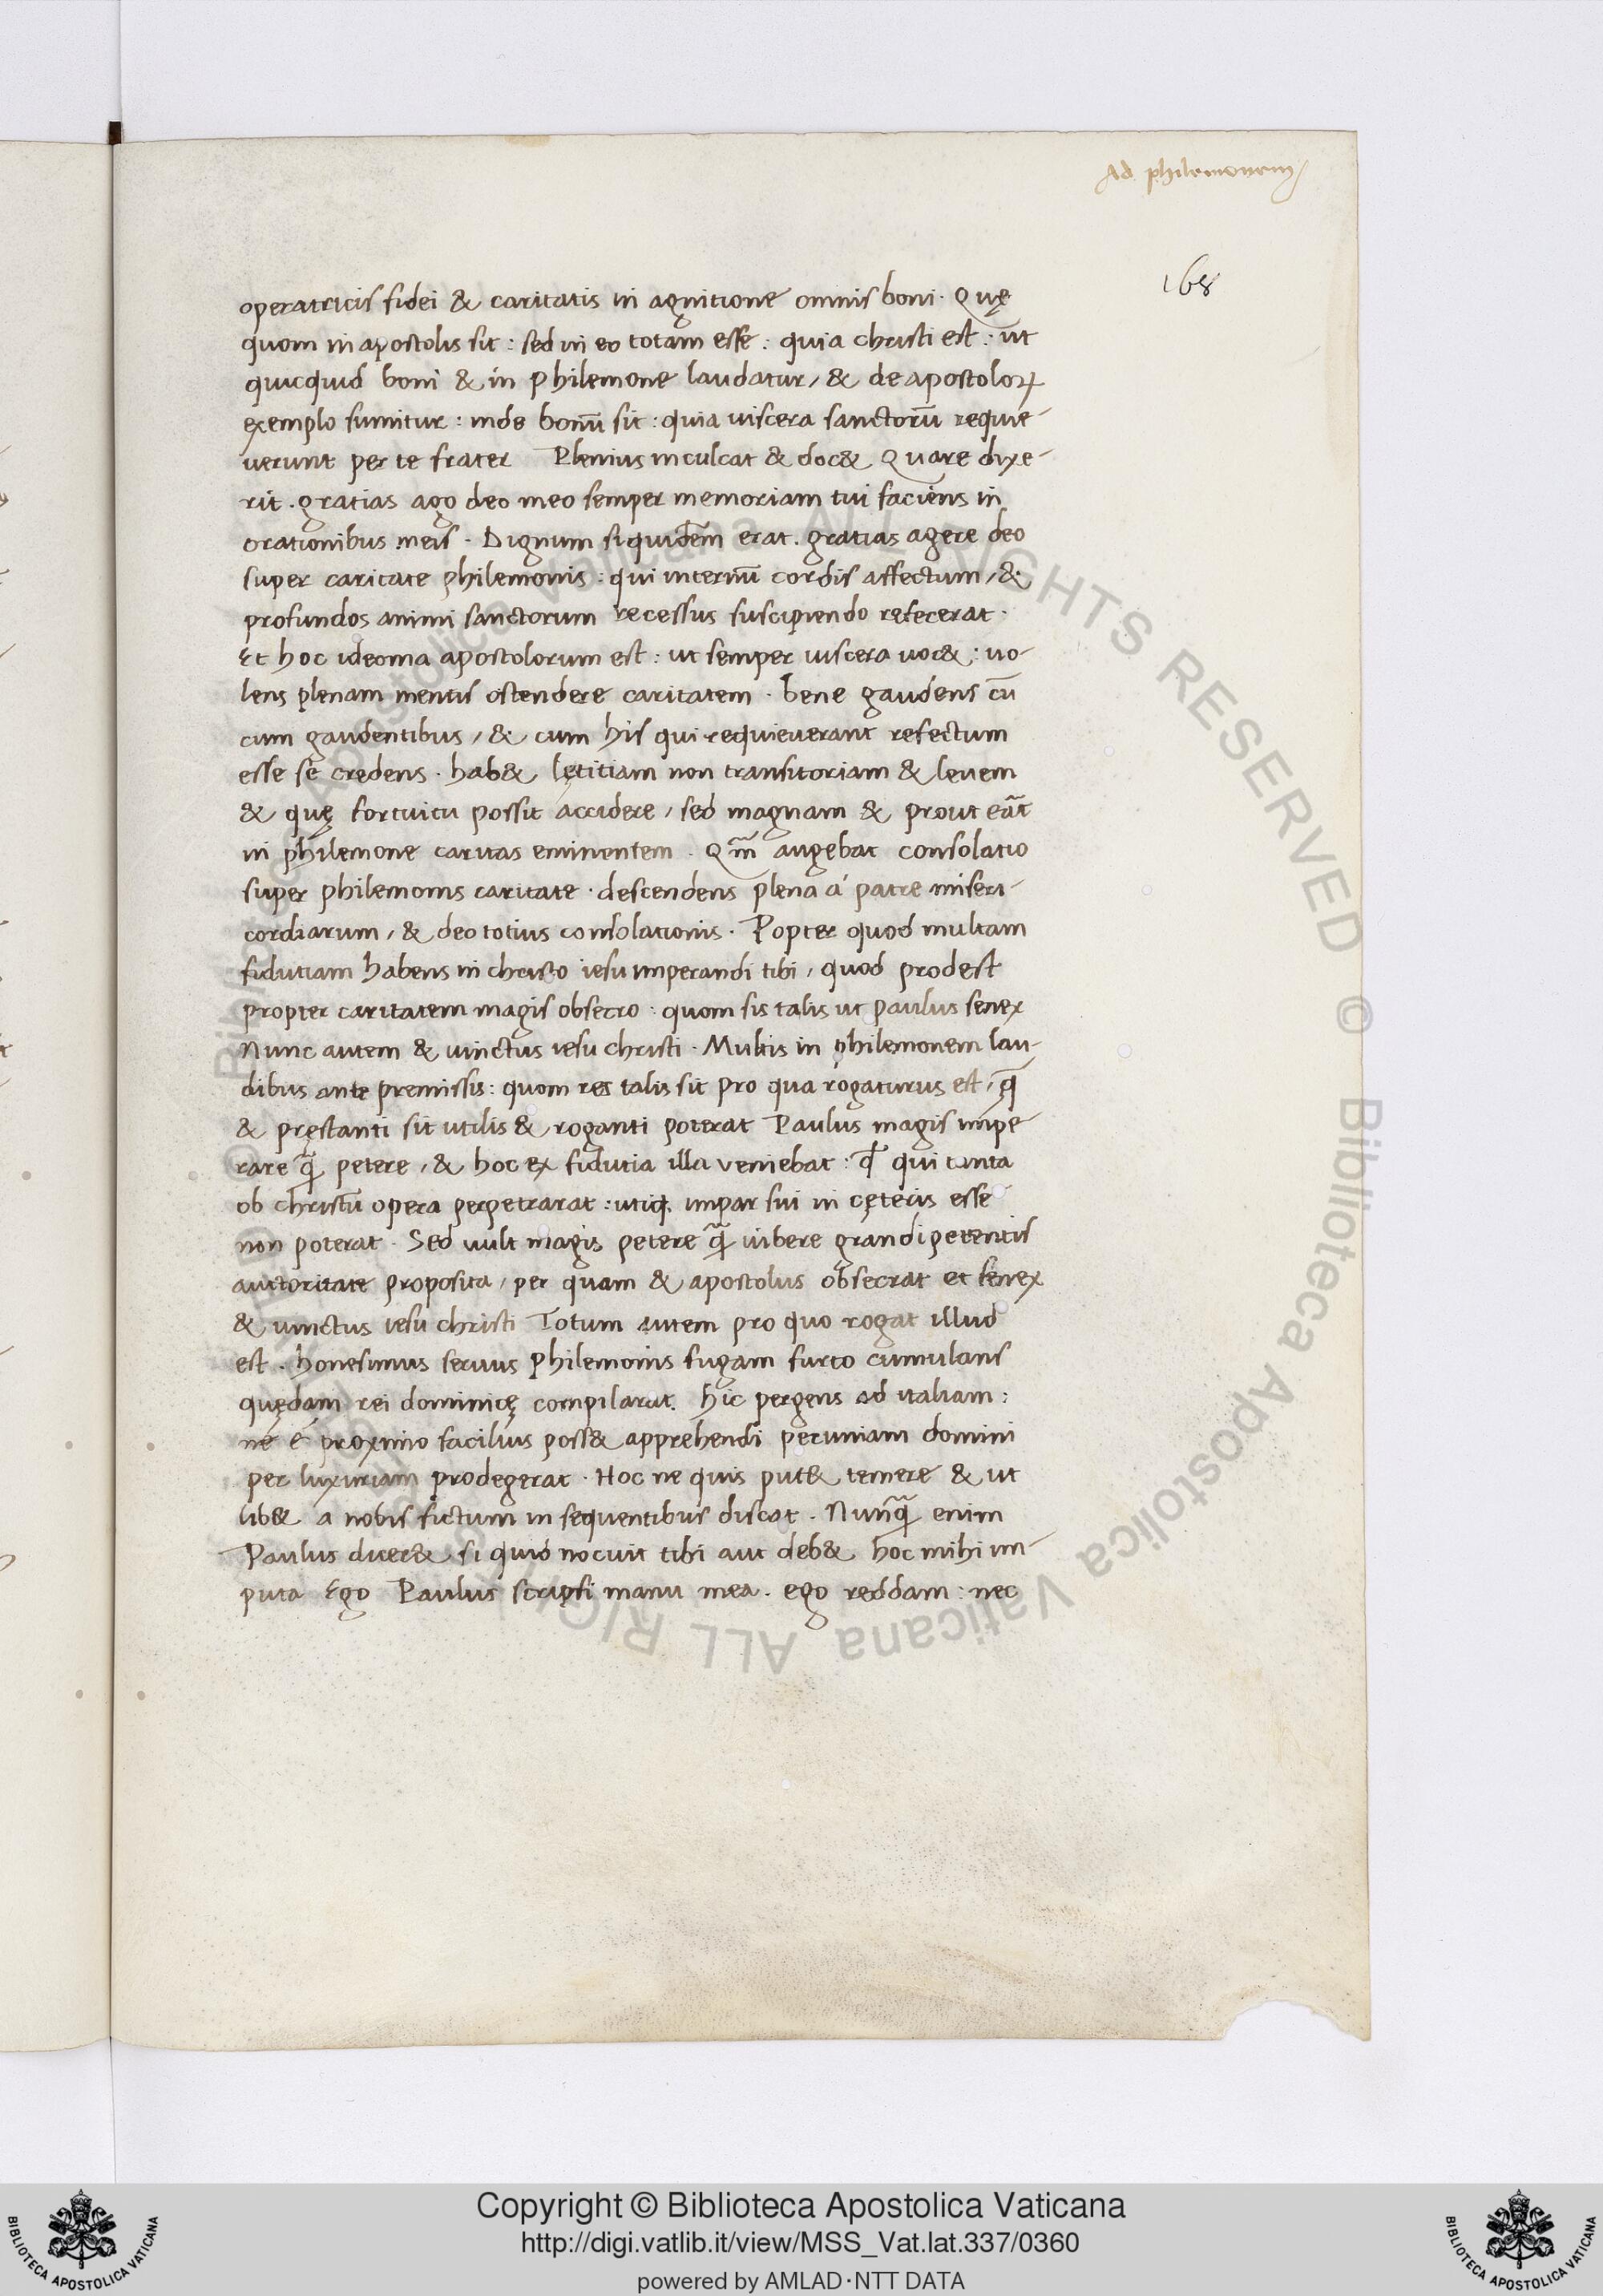 Ad philemonem
168
operatricis fidei & caritatis in agnitione omnis boni. Quę
quom in apostolis sit: sed in eo totam esse: quia christi est: ut
quicquid boni & in philemone laudatur, & de apostoloꝝ
exemplo sumitur: inde bonū sit: quia viscera sanctorū requie-
verunt per te frater Plenius inculcat & doc& Quare dixe-
rit. gratias ago deo meo semper memoriam tui faciens in
orationibus meis. Dignum siquidem erat. gratias agere deo
super caritate philemonis: qui internū cordis affectum, &
profundos animi sanctorum recessus suscipiendo refecerat.
Et hoc ideoma apostolorum est: ut semper viscera voc&: vo-
lens plenam mentis ostendere caritatem. bene gaudens cū
cum gaudentibus, & cum his qui requieverant refectum
esse se credens. hab& lętitiam non transitoriam & levem
& quę fortuitu possit accidere, sed magnam & prout eāt
in philemone caritas eminentem. Qm̄ augebat consolatio
super philemonis caritate. descendens plena á patre miseri-
cordiarum, & deo totius consolationis. Popter quod multam
fidutiam habens in christo iesu imperandi tibi, quod prodest
propter caritatem magis obsecro: quom sis talis ut paulus senex
Nunc autem & vinctus iesu christi. Multis in philemonem lau-
dibus ante premissis: quom res talis sit pro qua rogaturus est, q̄
& pręstanti sit utilis & roganti poterat Paulus magis impe-
rare q̄ petere, & hoc ex fidutia illa veniebat: q̄ qui tanta
ob christū opera perpetrarat: utiq. impar sui in cęteris esse
non poterat. Sed vult magis petere q̄ iubere grandi petentis
auctoritate proposita, per quam & apostolus obsecrat et senex
& vinctus iesu christi Totum autem pro quo rogat illud
est. honesimus servus philemonis fugam furto cumulans
quędam rei dominicę compilarat. hic pergens ad italiam:
ne é proximo facilius poss& apprehendi pecuniam domini
per luxuriam prodegerat. Hoc ne quis put& temere & ut
lib& a nobis fictum in sequentibus discat. Nunq̄ enim
Paulus dicer& si quid nocuit tibi aut deb& hoc mihi im-
puta Ego Paulus scripsi manu mea. ego reddam: nec
Copyright © Biblioteca Apostolica Vaticana
http://digi.vatlib.it/view/MSS_Vat.lat.337/0360
powered by AMLAD·NTT DATA